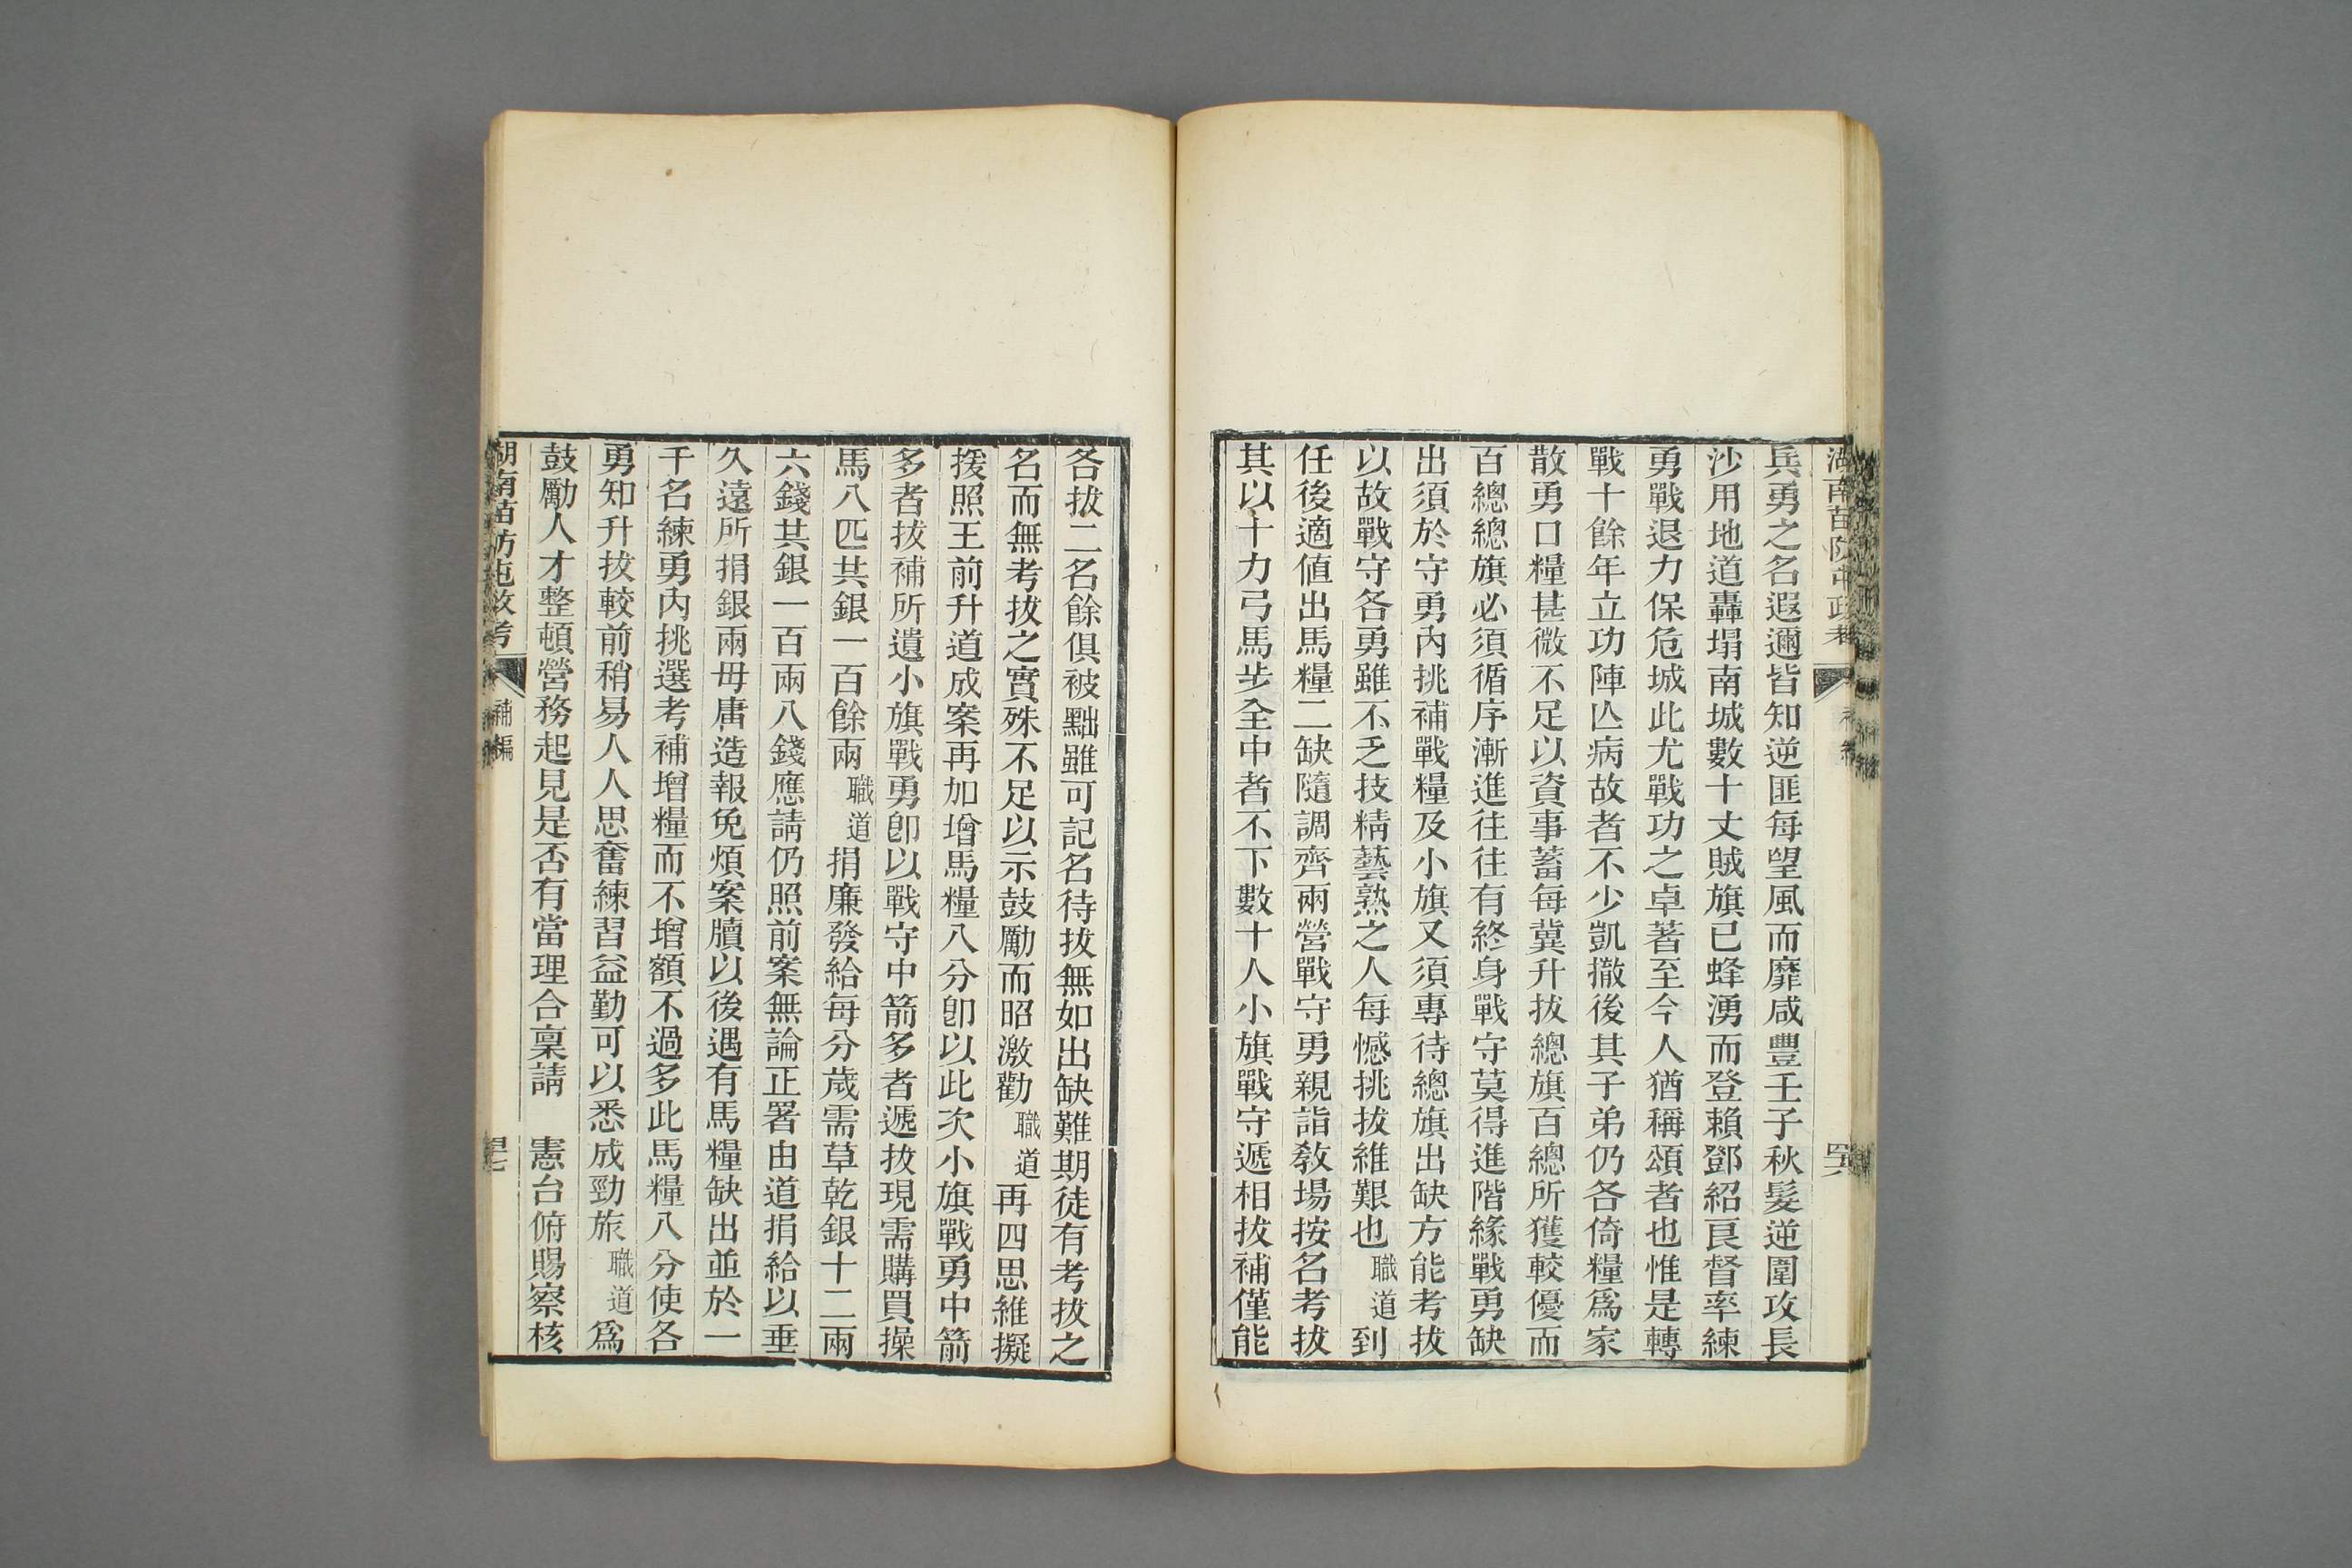 湖南苗防屯政考 補編 四六
兵勇之名遐邇皆知逆匪每望風而靡咸豐壬子秋髮逆圍攻長
沙用地道轟塌南城數十丈賊旗已蜂湧而登賴鄧紹良督率練
勇戰退力保危城此尤戰功之卓著至今人猶稱頌者也惟是轉
戰十餘年立功陣亾病故者不少凱撤後其子弟仍各倚糧爲家
散勇口糧甚微不足以資事蓄每冀升拔總旗百總所獲較優而
百總總旗必須循序漸進往往有終身戰守莫得進階緣戰勇缺
出須於守勇內挑補戰糧及小旗又須專待總旗出缺方能考拔
以故戰守各勇雖不乏技精藝熟之人每憾挑拔維艱也職道到
任後適値出馬糧二缺隨調齊兩營戰守勇親詣教場按名考拔
其以十力弓馬步全中者不下數十人小旗戰守遞相拔補僅能
各拔二名餘俱被黜雖可記名待拔無如出缺難期徒有考拔之
名而無考拔之實殊不足以示鼓勵而昭激勸職道再四思維擬
援照王前升道成案再加增馬糧八分卽以此次小旗戰勇中箭
多者拔補所遺小旗戰勇卽以戰守中箭多者遞拔現需購買操
馬八匹共銀一百餘兩職道捐廉發給每分歲需草乾銀十二兩
六錢共銀一百兩八錢應請仍照前案無論正署由道捐給以垂
久遠所捐銀兩毋庸造報免煩案牘以後遇有馬糧缺出並於一
千名練勇內挑選考補增糧而不增額不過多此馬糧八分使各
勇知升拔較前稍易人人思奮練習益勤可以悉成勁旅職道爲
鼓勵人才整頓營務起見是否有當理合稟請 憲台俯賜察核
湖南苗防屯政考 補編 四七